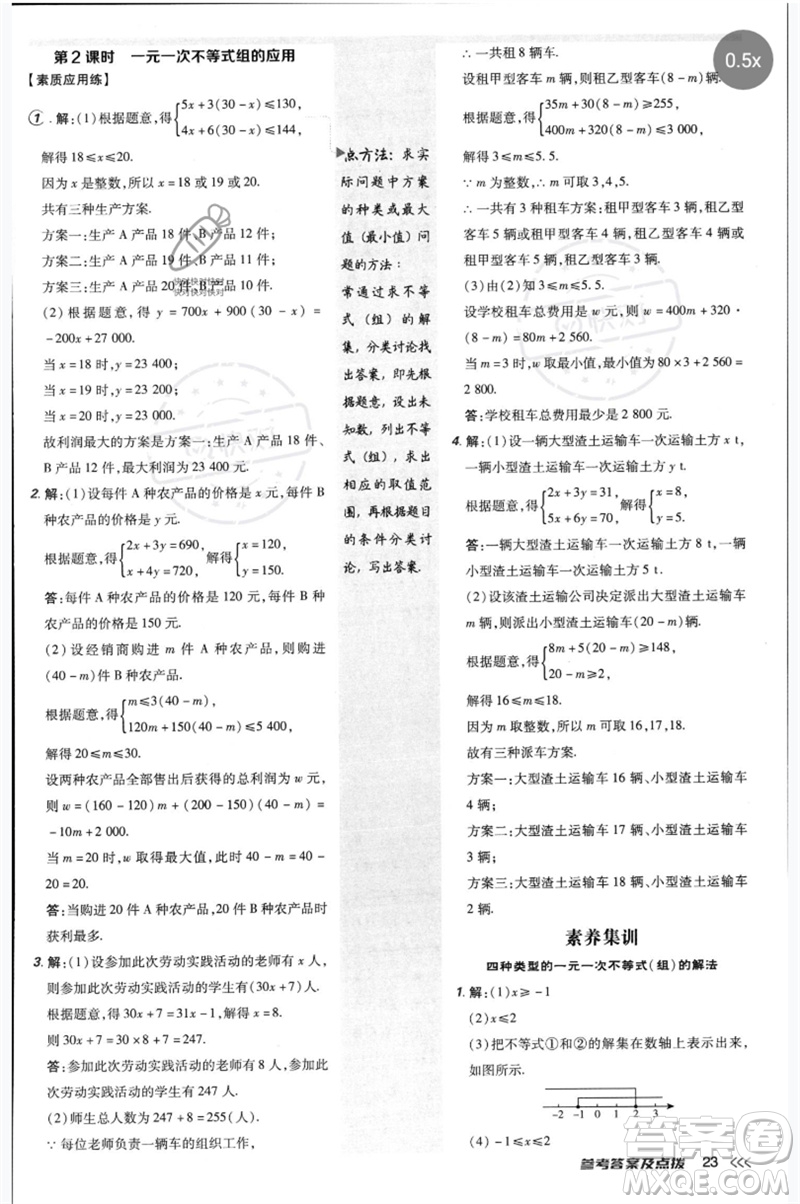 第2课时 一元一次不等式组的应用
【素质应用练】
1. 解:(1)根据题意,得{5x+3(30-x)≤130,
4x+6(30-x)≤144,
解得 18≤x≤20.
因为 x 是整数,所以 x=18 或 19 或 20.
共有三种生产方案.
方案一:生产 A 产品 18 件,B 产品 12 件;
方案二:生产 A 产品 19 件,B 产品 11 件;
方案三:生产 A 产品 20 件,B 产品 10 件.
(2)根据题意,得 y=700x+900(30-x)=
-200x+27 000.
当 x=18 时,y=23 400;
当 x=19 时,y=23 200;
当 x=20 时,y=23 000.
故利润最大的方案是方案一:生产 A 产品 18
件,B 产品 12 件,最大利润为 23 400 元.
2. 解:(1)设每件 A 种农产品的价格是 x 元,每件 B
种农产品的价格是 y 元.
根据题意,得{2x+3y=690,
x+4y=720,
解得{x=120,
y=150.
答:每件 A 种农产品的价格是 120 元,每件 B 种
农产品的价格是 150 元.
(2)设经销商购进 m 件 A 种农产品,则购进
(40-m)件 B 种农产品.
根据题意,得{m≤3(40-m),
120m+150(40-m)≤5 400,
解得 20≤m≤30.
设两种农产品全部售出后获得的总利润为 w 元,
则 w=(160-120)m+(200-150)(40-m)=
-10m+2 000.
当 m=20 时,w 取得最大值,此时 40-m=40-
20=20.
答:当购进 20 件 A 种农产品,20 件 B 种农产品时
获利最多.
3. 解:(1)设参加此次劳动实践活动的老师有 x 人,
则参加此次劳动实践活动的学生有(30x+7)人.
根据题意,得 30x+7=31x-1,解得 x=8.
所以 30x+7=30×8+7=247.
答:参加此次劳动实践活动的老师有 8 人,参加此
次劳动实践活动的学生有 247 人.
(2)师生总人数为 247+8=255(人),
∵每位老师负责一辆车的组织工作,
点方法:求实
际问题中方案
的种类或最大
值(最小值)问
题的方法:
常通过求不等
式(组)的解
集,分类讨论找
出答案,即先根
据题意,设出未
知数,列出不等
式(组),求出
相应的取值范
围,再根据题目
的条件分类讨
论,写出答案.
∴一共租 8 辆车.
设租甲型客车 m 辆,则租乙型客车(8-m)辆.
根据题意,得{35m+30(8-m)≥255,
400m+320(8-m)≤3 000,
解得 3≤m≤5. 5.
∵m 为整数,∴m 可取 3,4,5.
∴一共有 3 种租车方案:租甲型客车 3 辆,租乙型
客车 5 辆或租甲型客车 4 辆,租乙型客车 4 辆或
租甲型客车 5 辆,租乙型客车 3 辆.
(3)由(2)知 3≤m≤5. 5.
设学校租车总费用是 w 元,则 w=400m+320·
(8-m)=80m+2 560.
∴当 m=3 时,w 取最小值,最小值为 80×3+2 560=
2 800.
答:学校租车总费用最少是 2 800 元.
4. 解:(1)设一辆大型渣土运输车一次运土方 x t,
一辆小型渣土运输车一次运土方 y t.
根据题意,得{2x+3y=31,
5x+6y=70,
解得{x=8,
y=5.
答:一辆大型渣土运输车一次运土方 8 t,一辆
小型渣土运输车一次运土方 5 t.
(2)设该渣土运输公司决定派出大型渣土运输车
m 辆,则派出小型渣土运输车(20-m)辆.
根据题意,得{8m+5(20-m)≥148,
20-m≥2,
解得 16≤m≤18.
因为 m 取整数,所以 m 可取 16,17,18.
故有三种派车方案.
方案一:大型渣土运输车 16 辆、小型渣土运输车
4 辆;
方案二:大型渣土运输车 17 辆、小型渣土运输车
3 辆;
方案三:大型渣土运输车 18 辆、小型渣土运输车
2 辆.
素养集训
四种类型的一元一次不等式(组)的解法
1. 解:(1)x≥-1
(2)x≤2
(3)把不等式①和②的解集在数轴上表示出来
如图所示.
-2 -1 0 1 2 3
(4)-1≤x≤2
参考答案及点拨 23
0.5x